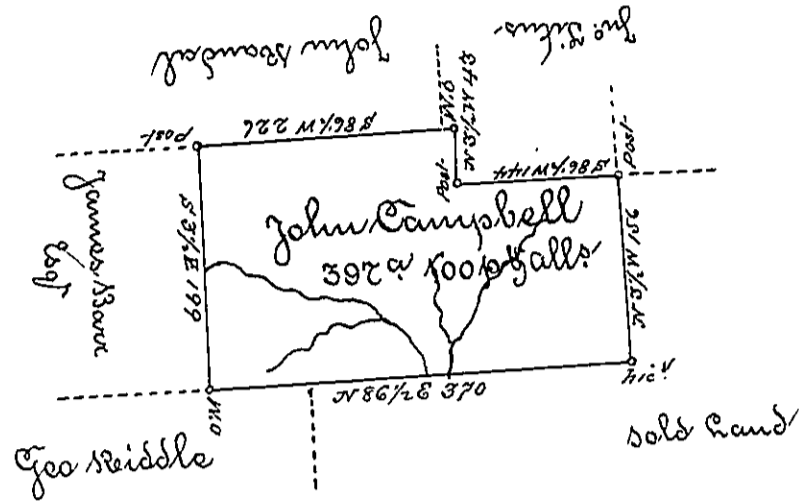 John Randal
Jno. Titus
Post
S 86½ W 226
W.O
N 3½ W 43
Post
S 86½ W 144
Post
James Barr
Esqr
S 3½ E 199
John Campbell
397 a 100 p & alls
N 3½ W 156
Hicy
W.O
N 86½ E 370
Geo Riddle
Sold Land